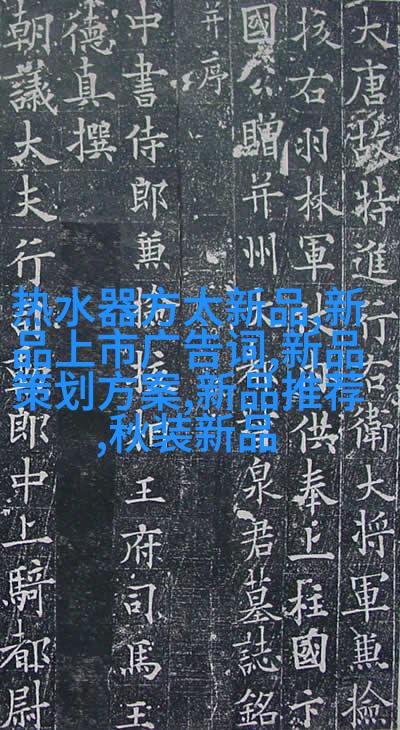 大唐故特進行右衛大將軍兼撿
挍右羽林軍供奉上柱國卞
國公贈并州泉君墓誌銘
并序
中書侍郎兼撿挍相王府司馬王
德真撰
朝議大夫行郎中上騎都尉
热水器方太新品,新
品上市广告词,新品
策划方案,新品推荐
,秋装新品